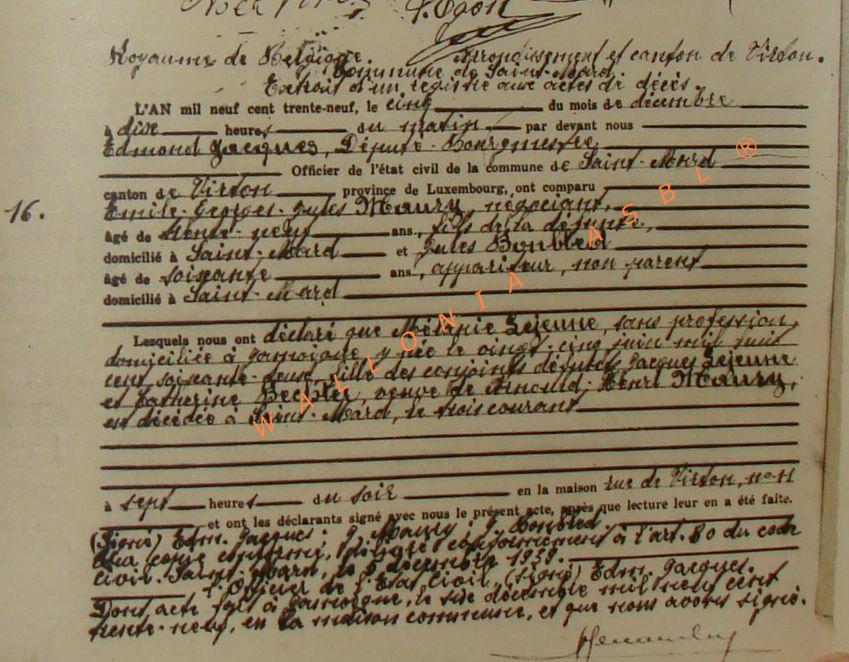 Royaume de Belgique. Arrondissement et canton de Virton.
Commune de Saint-Mard
Extrait d'un registre aux actes de décès.
L'AN mil neuf cent trente-neuf, le cinq du mois de décembre
à dix heures du matin par devant nous
Edmond Jacques, Député-Bourgmestre
Officier de l'état civil de la commune de Saint-Mard
canton de Virton province de Luxembourg, ont comparu
16.
Emile-Georges-Jules Maury, négociant,
âgé de trente-neuf ans, fils de la défunte,
domicilié à Saint-Mard et Jules Bonbled
âgé de soixante ans, appariteur, non parent
domicilié à Saint-Mard
Lesquels nous ont déclaré que Mélanie Lejeune, sans profession,
domiciliée à Jamoigne, y née le vingt-cinq juin mil huit
cent soixante-deux, fille des conjoints défunts Jacques Lejeune
et Catherine veuve de Arnould-Henri Maury,
est décédée à Saint-Mard, le trois courant
à sept heures du soir en la maison rue de Virton, no 11
et ont les déclarants signé avec nous le présent acte, après que lecture leur en a été faite.
(Signé) Edm. Jacques; G. Maury; J. Bonbled.
Pour copie conforme, délivrée conformément à l'art. 80 du code
civil. Saint-Mard, le 5 décembre 1939.
L'Officier de l'Etat Civil, (signé) Edm. Jacques.
Dont acte fait à Jamoigne, le six décembre mil neuf cent
trente-neuf, en la maison commune, et que nous avons signé.
WALLONIA ASBL ®